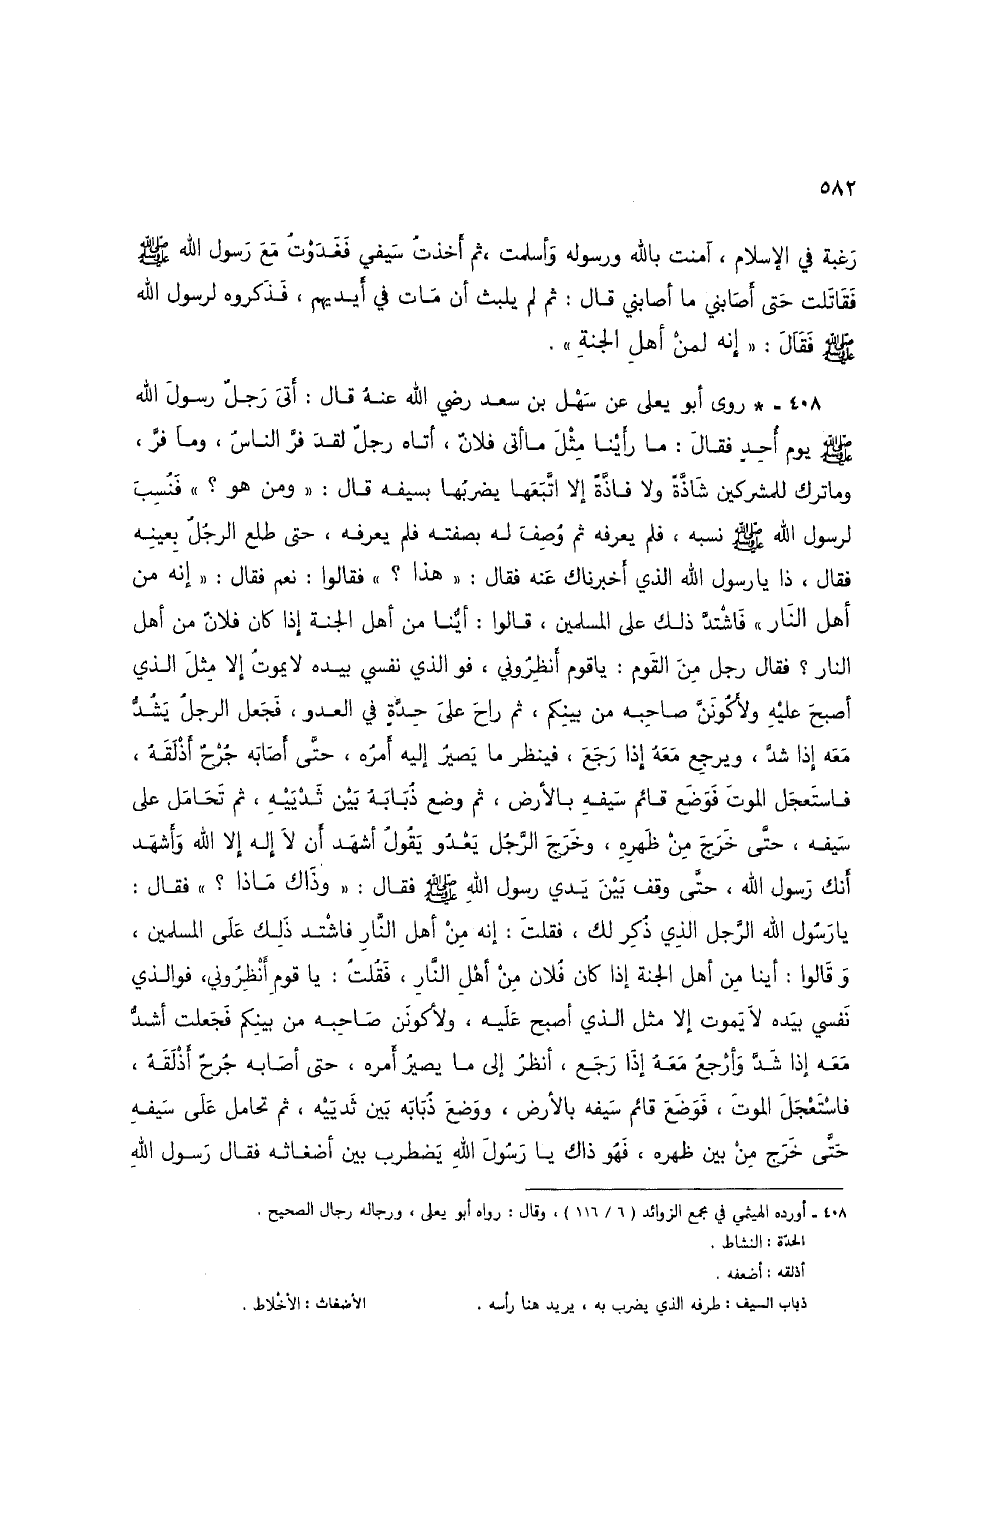 ٥٨٢
رَغبة في الإسلام ، آمنت بالله ورسوله وَأسلمت ،ثم أَخذتُ سَيفي فَغَدَوْتُ مَعَ رَسول الله ﷺ
فَقَاتَلت حَتى أَصَابني ما أصابني قال : ثم لم يلبث أن مَات في أَيديهم ، فَذكروه لرسول الله
ﷺ فَقَالَ : « إنه لمنْ أهلِ الجنةِ » .
٤٠٨ ـ * روى أبو يعلى عن سَهْل بن سعد رضي الله عنهُ قال : أَتىَ رَجلٌ رسولَ الله
ﷺ يوم أُحدٍ فقالَ : ما رأَيْنا مِثْلَ ماأتى فلانٌ ، أتاه رجلٌ لقدَ فرَّ الناسُ ، وماَ فرَّ ،
وماترك للمشركين شَاذَّةً ولا فاذَّةً إلا اتَّبَعَها يضربُها بسيفه قال : « ومن هو ؟ » فَنُسِبَ
لرسول الله ﷺ نسبه ، فلم يعرفه ثم وُصِفَ له بصفته فلم يعرفه ، حتى طلع الرجلُ بعينِه
فقال ، ذا يارسول الله الذي أخبرناك عَنه فقال : « هذا ؟ » فقالوا : نعم فقال : « إنه من
أهل النَار » فَاشْتدَّ ذلك على المسلمين ، قالوا : أَيُّنا من أهل الجنة إذا كان فلانٌ من أهل
النار ؟ فقال رجل مِنَ القَوم : ياقوم أَنظِرُوني ، فو الذي نفسي بيده لايموتُ إلا مِثلَ الذي
أصبحَ عليْهِ ولأَكُونَنَّ صاحِبه من بينكم ، ثم راحَ علىَ حِدَّةٍ في العدو ، فَجَعل الرجلُ يَشُدُّ
مَعَه إذا شدَّ ، ويرجع مَعَهُ إذا رَجَعَ ، فينظر ما يَصيرُ إليه أَمرُه ، حتَّى أَصَابَه جُرْحٌ أَذْلَقَهُ ،
فاستَعجَل الموتَ فَوَضَع قائم سَيفهِ بالأرض ، ثم وضع ذُبَابَهُ بَيْن ثَديَيْهِ ، ثم تَحَامَل على
سَيفه ، حتَّى خَرَجَ مِنْ ظَهرِهِ ، وخَرَجَ الرَّجُل يَعْدُو يَقُولُ أشهَد أن لاَ إله إلا الله وَأشهَد
أَنك رَسول الله ، حتَّى وقف بَيْنَ يَدي رسول اللهِ ﷺ فقال : « وذَاكَ مَاذا ؟ » فقال :
يارَسُول الله الرَّجل الذي ذُكِر لك ، فقلتَ : إنه مِنْ أهل النَّارِ فاشْتد ذَلِك عَلَى المسلمين ،
وَ قَالوا : أينا مِن أهل الجنة إذا كان فُلان مِنْ أهْلِ النَّارِ ، فَقُلتُ : يا قومِ أَنْظِرُوني، فوالذي
نَفسي بيَده لاَيَموت إلا مثل الذي أصبح عَلَيه ، ولأكونَن صَاحِبه من بينِكم فَجَعلت أشدُّ
مَعَه إذا شَدَّ وَأرْجعُ مَعَهُ إذَا رَجَع ، أنظرُ إلى ما يصيرُ أمره ، حتى أصَابه جُرحٌ أَذْلَقَهُ ،
فاسْتَعْجَلَ الموتَ ، فَوَضَعَ قائم سَيفه بالأرض ، ووَضعَ ذُبَابَه بَين ثَديَيْه ، ثم تحامل عَلَى سَيفهِ
حَتَّى خَرَج مِنْ بين ظهره ، فَهُو ذاك يا رَسُولَ اللهِ يَضطرب بين أضغَاثه فقال رَسول اللهِ
٤٠٨ ـ أورده الهيثمي في مجمع الزوائد ( ٦ / ١١٦ ) ، وقال : رواه أبو يعلى ، ورجاله رجال الصحيح .
الحدّة : النشاط .
أذلقه : أضعفه .
ذباب السيف : طرفه الذي يضرب به ، يريد هنا رأسه . الأضغاث : الأخْلاط .